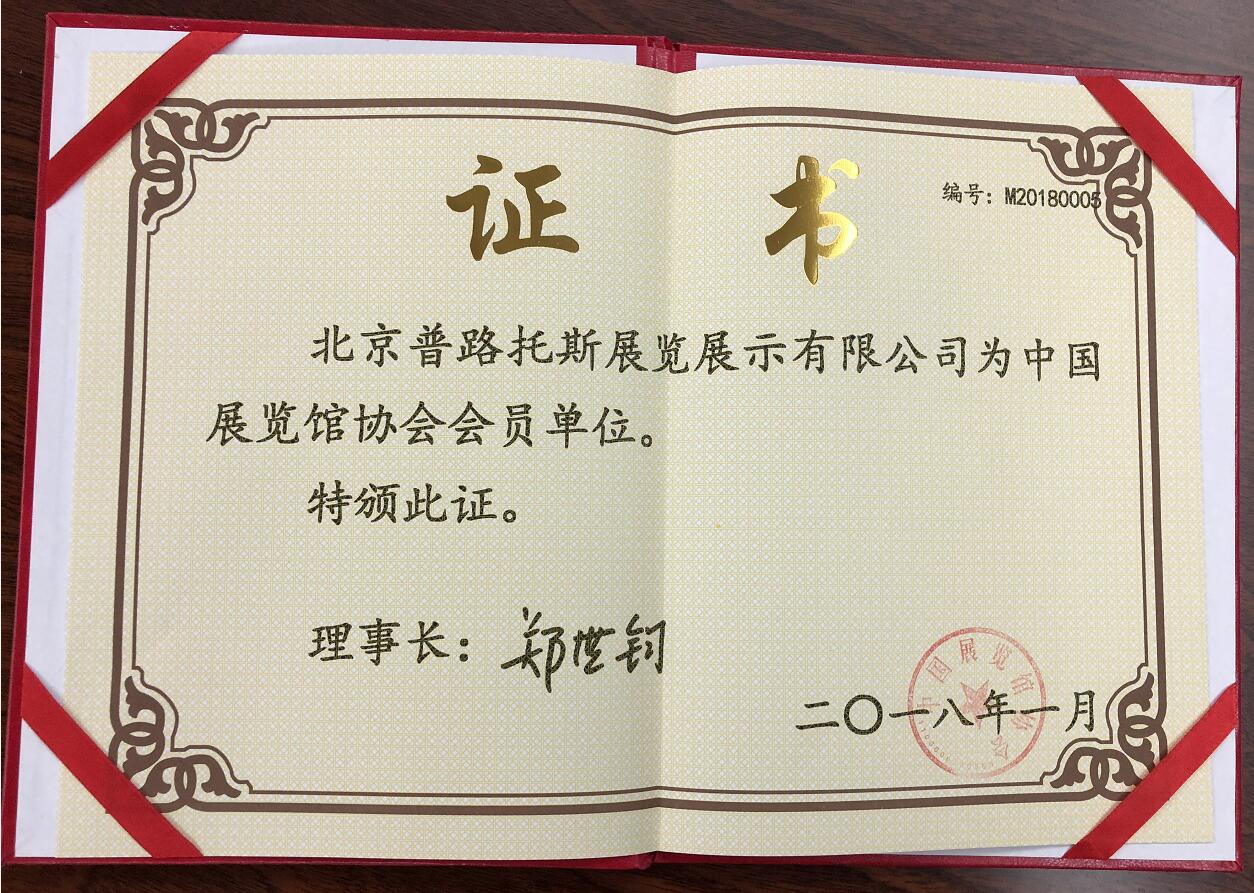 证 书
编号：M20180005
北京普路托斯展览展示有限公司为中国
展览馆协会会员单位。
特颁此证。
理事长：郑世钧
二〇一八年一月
中国展览馆协会